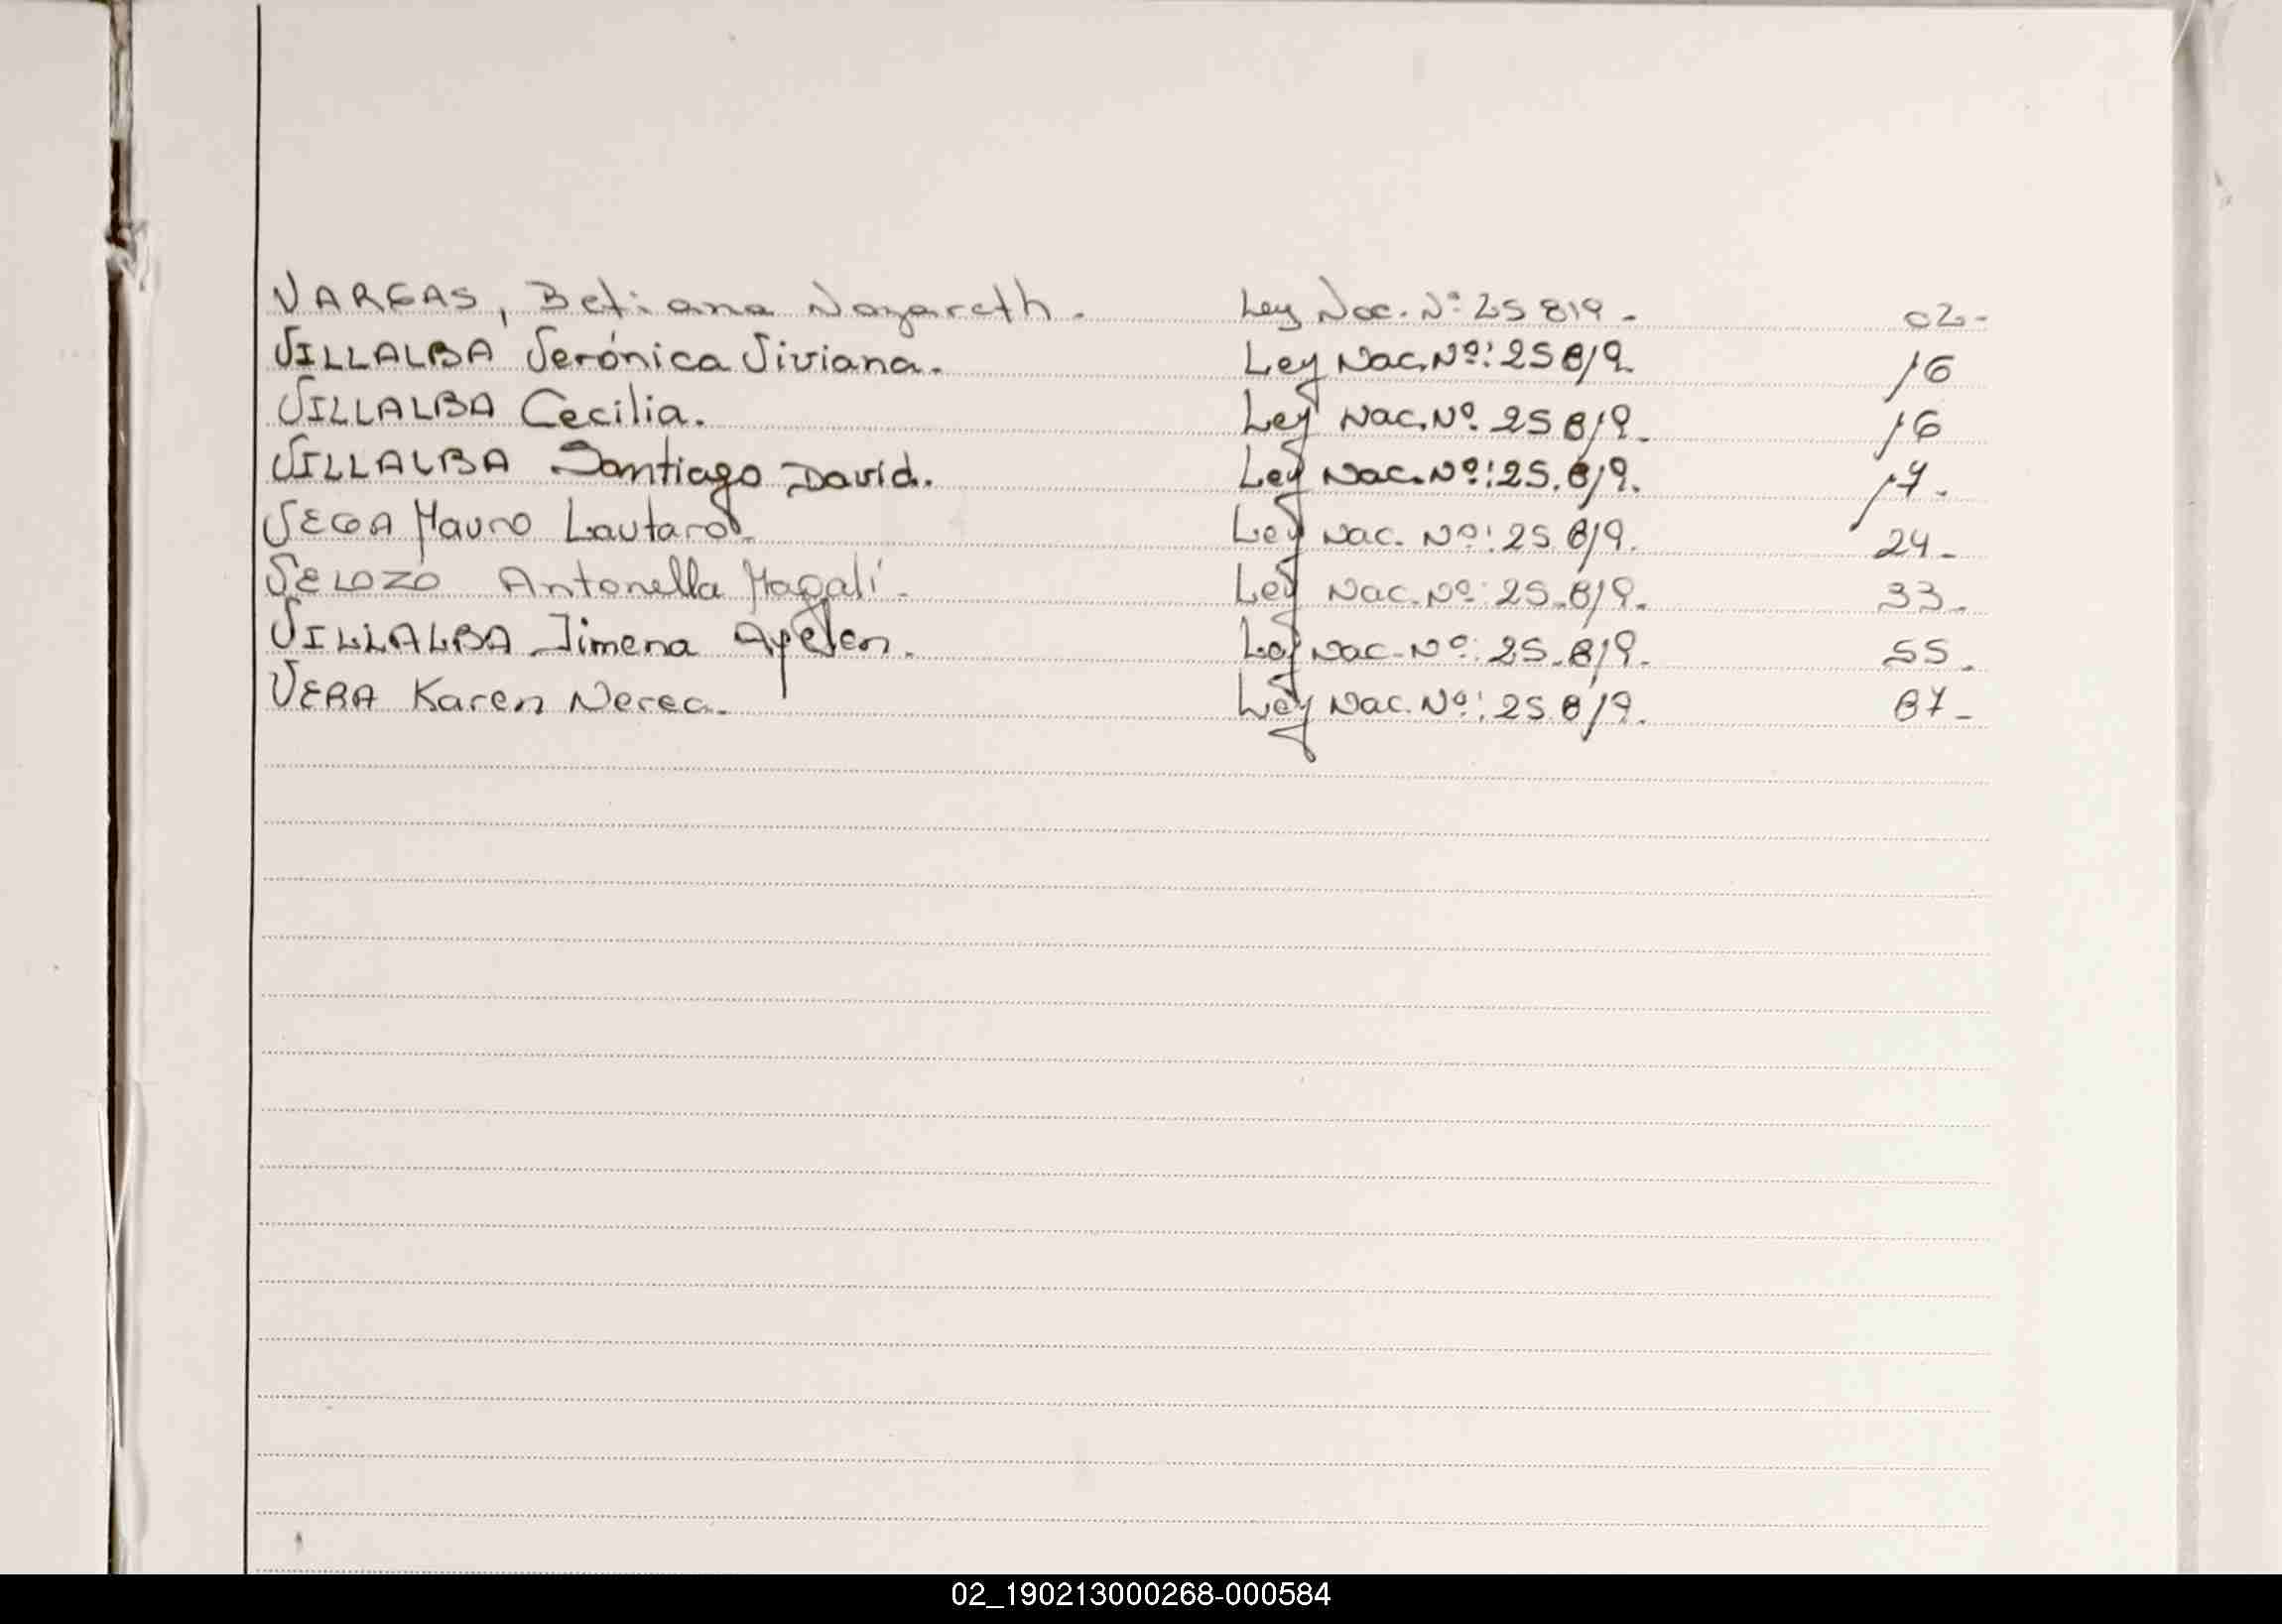 VARGAS, Betiana Nazareth. Ley Nac. Nº 25819. 02-
VILLALBA Verónica Viviana. Ley Nac. Nº: 25819. 16
VILLALBA Cecilia. Ley Nac. Nº. 25819. 16
VILLALBA Santiago David. Ley Nac. Nº: 25.819. 17.
VEGA Mauro Lautaro. Ley Nac. Nº: 25819. 24-
VELOZO Antonella Magalí. Ley Nac. Nº: 25.819. 33.
VILLALBA Jimena Ayelen. Ley Nac. Nº: 25.819. 55.
VERA Karen Nerea. Ley Nac. Nº: 25819. 87-
02_190213000268-000584